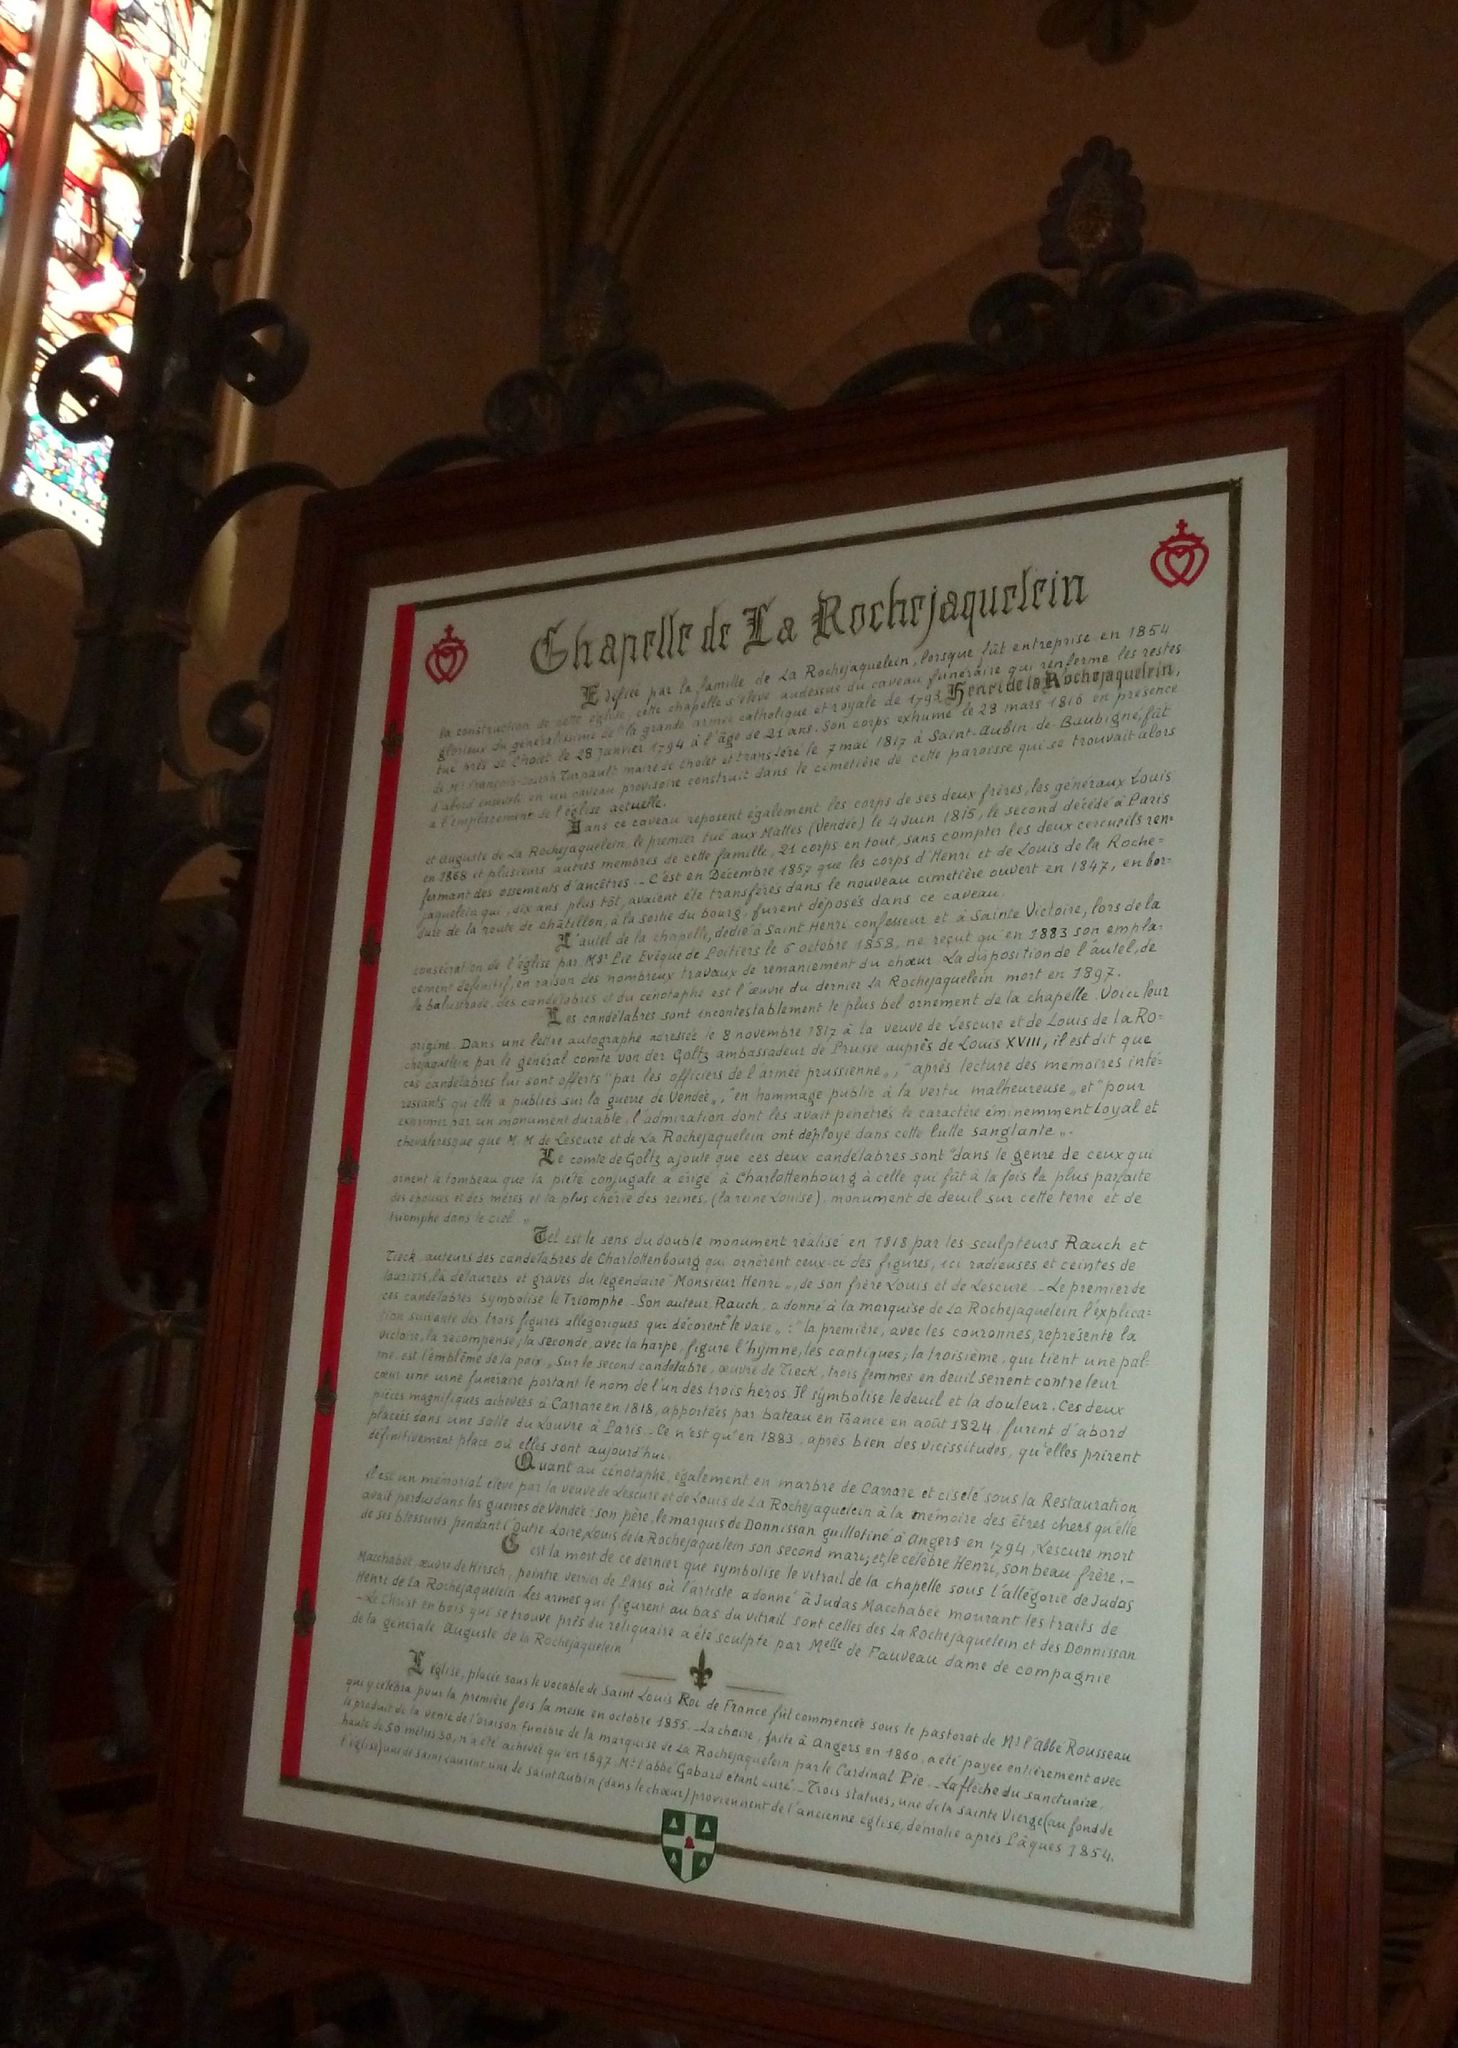 Chapelle de La Rochejaquelein
Edifiée par la famille de La Rochejaquelein, lorsque fût entreprise en 1854
la construction de cette église, cette chapelle s'élève audessus du caveau funéraire qui renferme les restes
glorieux du généralissime de "la grande armée catholique et royale de 1793 Henri de la Rochejaquelein,
tué près de Cholet le 28 janvier 1794 à l'âge de 21 ans. Son corps exhumé le 28 mars 1816 en présence
de Mr François-Joseph Turpault maire de Cholet et transféré le 7 mai 1817 à Saint-Aubin-de-Baubigné, fût
d'abord enseveli en un caveau provisoire construit dans le cimetière de cette paroisse qui se trouvait alors
à l'emplacement de l'église actuelle.
Dans ce caveau reposent également les corps de ses deux frères, les généraux Louis
et Auguste de La Rochejaquelein, le premier tué aux Mattes (Vendée) le 4 Juin 1815, le second décédé à Paris
en 1868 et plusieurs autres membres de cette famille, 21 corps en tout, sans compter les deux cercueils ren-
fermant des ossements d'ancêtres._ C'est en Décembre 1857 que les corps d'Henri et de Louis de la Roche-
jaquelein qui, dix ans plus tôt, avaient été transférés dans le nouveau cimetière ouvert en 1847, en bor-
dure de la route de châtillon, à la sortie du bourg, furent déposés dans ce caveau.
L'autel de la chapelle, dédié à Saint Henri confesseur et à Sainte Victoire, lors de la
consécration de l'église par Mgr Pie Evêque de Poitiers le 6 octobre 1858, ne reçut qu'en 1883 son empla-
cement définitif, en raison des nombreux travaux de remaniement du chœur. La disposition de l'autel, de
la balustrade, des candélabres et du cénotaphe est l'œuvre du dernier La Rochejaquelein mort en 1897.
Les candélabres sont incontestablement le plus bel ornement de la chapelle. Voici leur
origine. Dans une lettre autographe adressée le 8 novembre 1817 à la veuve de Lescure et de Louis de la Ro-
chejaquelein par le général comte von der Goltz ambassadeur de Prusse auprès de Louis XVIII, il est dit que
ces candélabres lui sont offerts "par les officiers de l'armée prussienne", "après lecture des mémoires inté-
ressants qu'elle a publiés sur la guerre de Vendée", "en hommage public à la vertu malheureuse" et "pour
exprimer par un monument durable, l'admiration dont les avait pénétrés le caractère éminemment Loyal et
chevaleresque que M.M de Lescure et de La Rochejaquelein ont déployé dans cette lutte sanglante".
Le comte de Goltz ajoute que ces deux candélabres sont "dans le genre de ceux qui
ornent le tombeau que la piété conjugale a érigé à Charlottenbourg à celle qui fût à la fois la plus parfaite
des épouses et des mères et la plus chérie des reines, (la reine Louise), monument de deuil sur cette terre et de
triomphe dans le ciel."
Tel est le sens du double monument réalisé en 1818 par les sculpteurs Rauch et
Tieck, auteurs des candélabres de Charlottenbourg qui ornèrent ceux-ci des figures, ici radieuses et ceintes de
lauriers, là délaurées et graves du légendaire "Monsieur Henri", de son frère Louis et de Lescure._ Le premier de
ces candélabres symbolise le Triomphe._ Son auteur, Rauch, a donné à la marquise de La Rochejaquelein l'explica-
tion suivante des trois figures allégoriques qui décorent "le vase": "la première, avec les couronnes, représente la
victoire, la récompense; la seconde, avec la harpe, figure l'hymne, les cantiques; la troisième, qui tient une pal-
me, est l'emblême de la paix". Sur le second candélabre, œuvre de Tieck, trois femmes en deuil serrent contre leur
cœur une urne funéraire portant le nom de l'un des trois héros. Il symbolise le deuil et la douleur. Ces deux
pièces magnifiques achevées à Carrare en 1818, apportées par bateau en France en août 1824, furent d'abord
placées dans une salle du Louvre à Paris._ Ce n'est qu'en 1883, après bien des vicissitudes, qu'elles prirent
définitivement place où elles sont aujourd'hui.
Quant au cénotaphe, également en marbre de Carrare et ciselé sous la Restauration
il est un mémorial élevé par la veuve de Lescure et de Louis de La Rochejaquelein à la mémoire des êtres chers qu'elle
avait perdus dans les guerres de Vendée: son père, le marquis de Donnissan guillotiné à Angers en 1794, Lescure mort
de ses blessures pendant l'Outre Loire, Louis de la Rochejaquelein son second mari; et, le célèbre Henri, son beau-frère._
C'est la mort de ce dernier que symbolise le vitrail de la chapelle sous l'allégorie de Judas
Macchabée, œuvre de Hirsch, peintre verrier de Paris où l'artiste a donné à Judas Macchabée mourant les traits de
Henri de La Rochejaquelein. Les armes qui figurent au bas du vitrail sont celles des La Rochejaquelein et des Donnissan
_ Le Christ en bois qui se trouve près du reliquaire a été sculpté par Melle de Fauveau dame de compagnie
de la générale Auguste de la Rochejaquelein
L'église, placée sous le vocable de Saint Louis Roi de France fût commencée sous le pastorat de Mr l'abbé Rousseau
qui y célébra pour la première fois la messe en octobre 1855._ La chaire, faite à Angers en 1860, a été payée entièrement avec
le produit de la vente de l'oraison funèbre de la marquise de La Rochejaquelein par le Cardinal Pie._ La flèche du sanctuaire,
haute de 50 mètres 50, n'a été achevée qu'en 1897, Mr l'abbé Gabard étant curé._ Trois statues, une de la Sainte Vierge (au fond de
l'église) une de Saint Laurent, une de Saint Aubin (dans le chœur) proviennent de l'ancienne église, démolie après Pâques 1854.